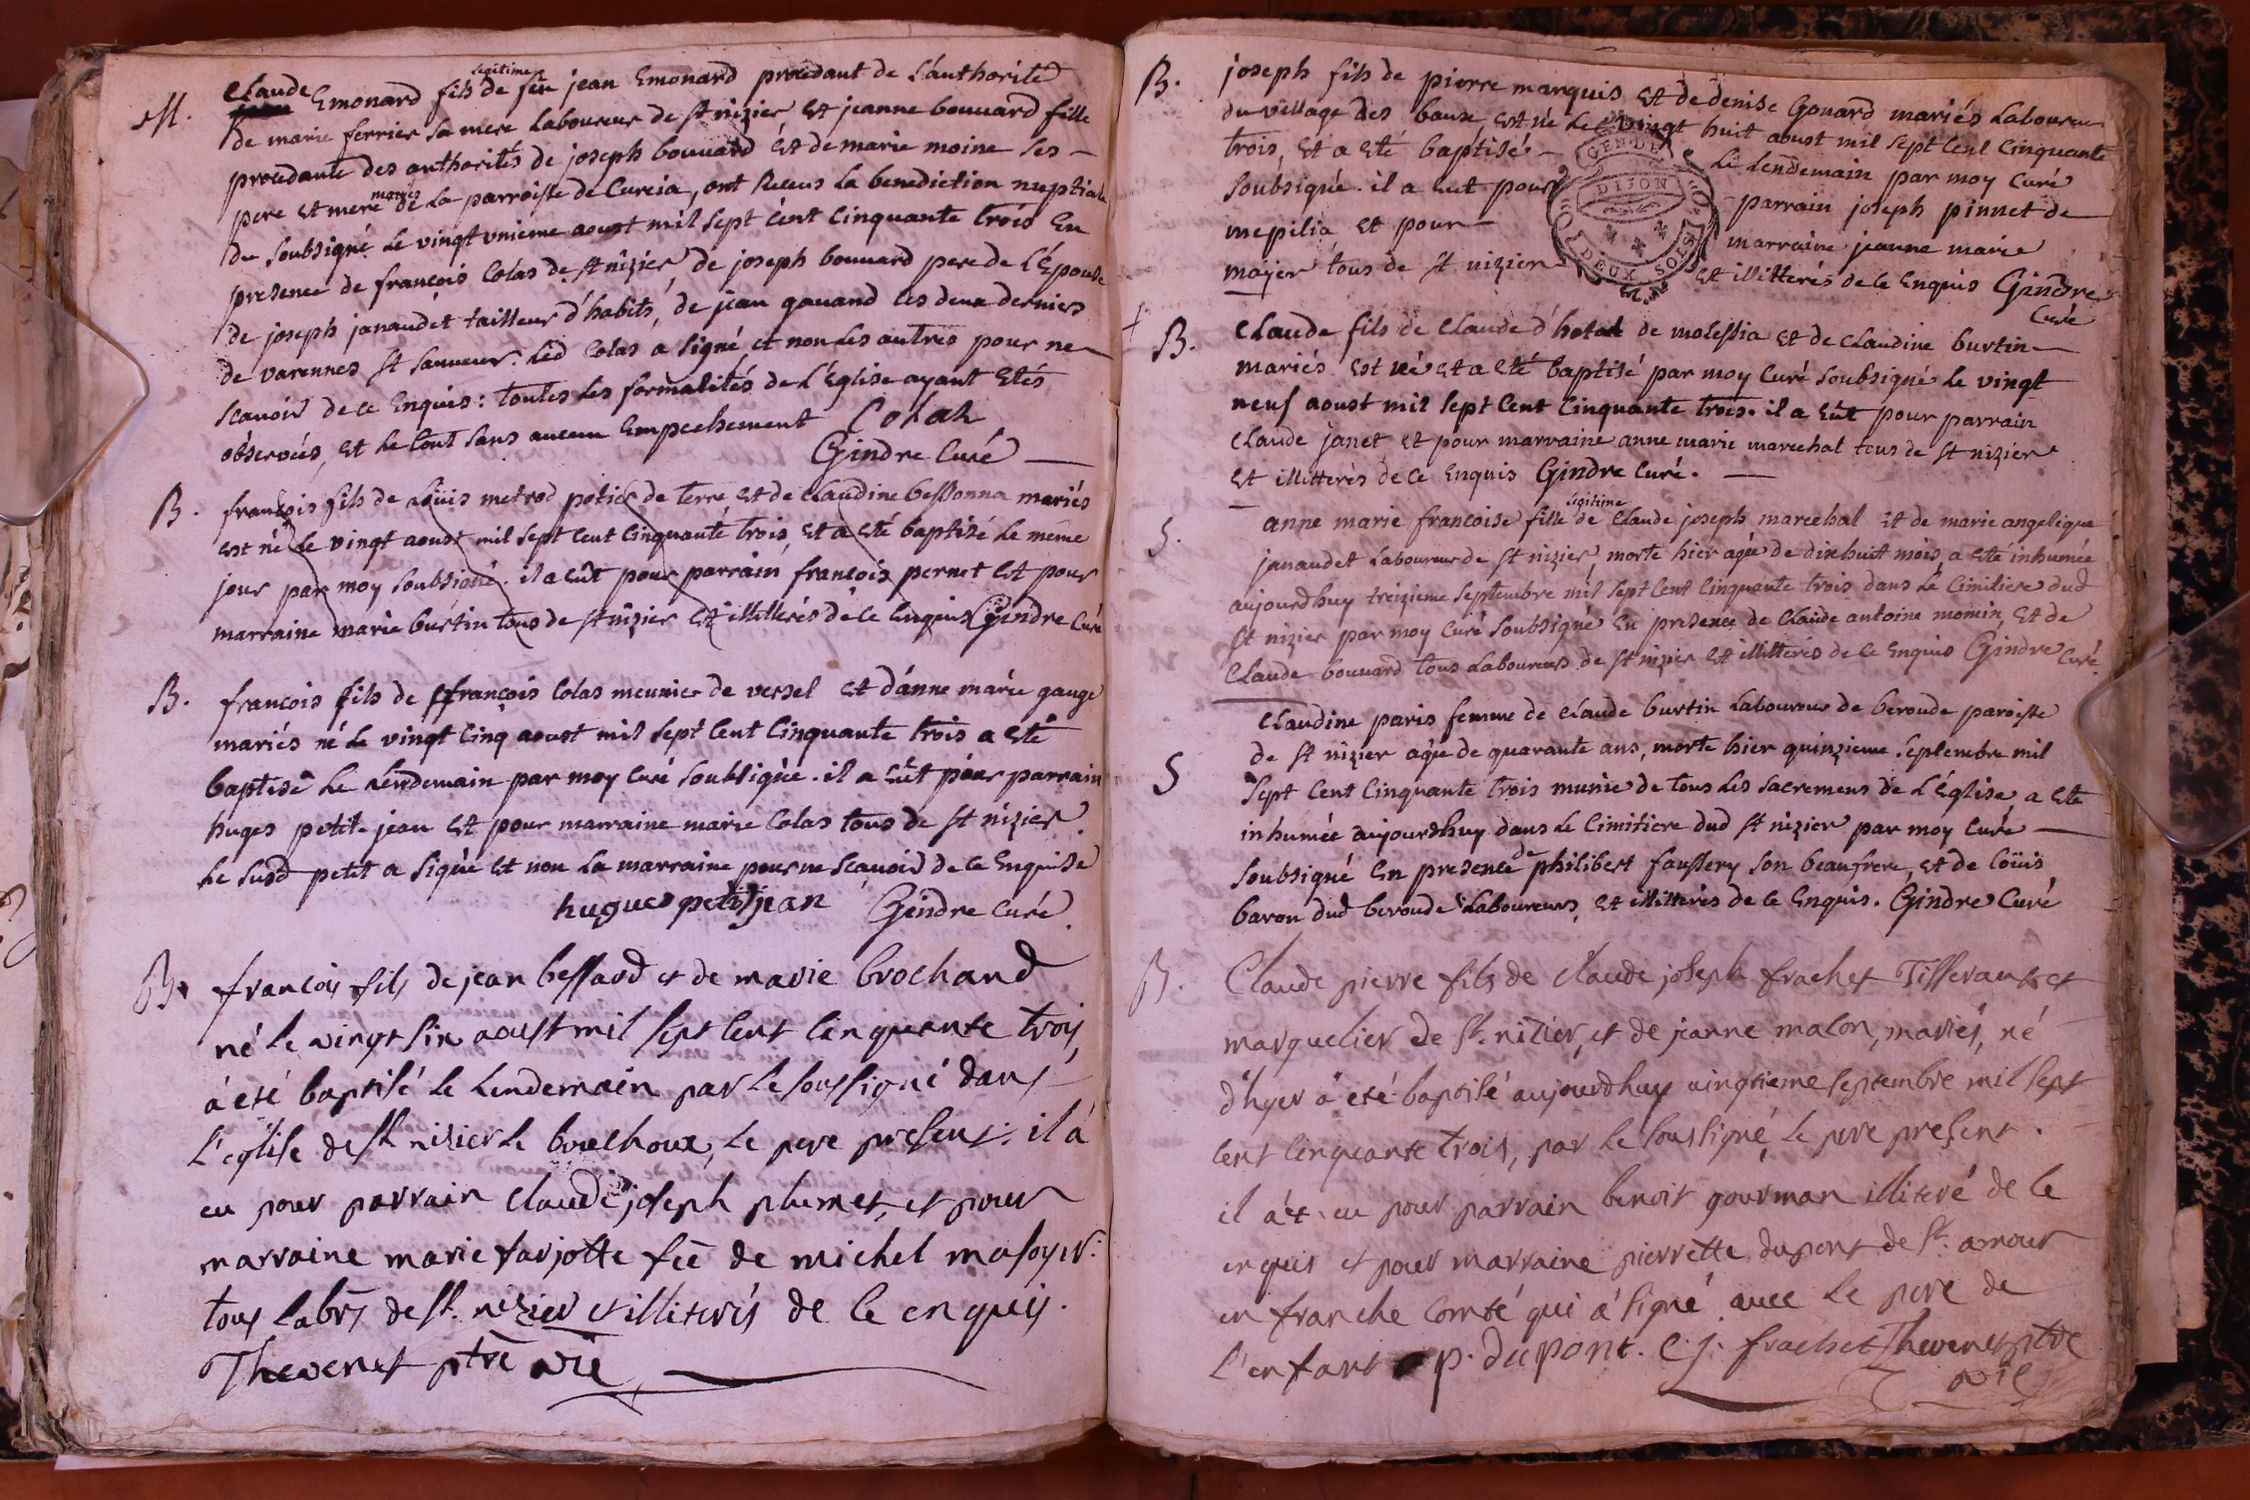 M.
Claude Emonard fils legitime de feu jean Emonard procedant de L'authorité
de marie ferrier sa mere Laboureur de st nizier Et jeanne bouvard fille
procedante des authorités de joseph bouvard Et de marie moine ses
pere Et mere mariés de La parroisse de Curcia, ont Receus La benediction nuptiale
du soubsigné Le vingt vnieme aoust mil sept cent Cinquante trois En
presence de françois Colas de st nizier, de joseph bouvard pere de L'Epouse
de joseph janaudet tailleur d'habits, de jean gauand Les deux derniers
de varennes st sauveur. Led Colas a signé et non Les autres pour ne
scavoir de ce Enquis: toutes Les formalités de L'Eglise ayant Etés
observées, et Le tout sans aucun Empechement Colas
Gindre Curé
B.
françois fils de Loüis metrod potier de terre Et de Claudine bessonna mariés
est né Le vingt aoust mil sept cent Cinquante trois, Et a Eté baptisé Le meme
jour par moy soubsigné. il a Eût pour parrain françois pernet Et pour
marraine marie burtin tous de st nizier Et illitterés de ce Enquis Gindre Curé
B.
françois fils de françois Colas meunier de versel Et d'anne marie gauge
mariés né Le vingt Cinq aoust mil sept Cent Cinquante trois a Eté
baptisé Le Lendemain par moy Curé soubsigné. il a Eût pour parrain
huges petit jean Et pour marraine marie Colas tous de st nizier.
Le susd petit a signé Et non La marraine pour ne scavoir de ce Enquise
hugues petitjean Gindre Curé.
B.
francois fils de jean bessard et de marie brochand
né le vingt six aoust mil sept cent cinquante trois,
à eté baptisé le Lendemain par le soussigné dans
l'eglise de st nizier le bouchoux, le pere present: il à
eu pour parrain claude joseph plumet, et pour
marraine marie farjotte fẽ de michel masoyer:
tous Labrs de st. nizier et illiterés de ce enquis.
Thevenet ptre vic
B.
joseph fils de pierre marquis Et de denise Gouard mariés Laboureur
du village des baux est né Le vingt huit aoust mil sept Cent Cinquante
trois, Et a Eté baptisé Le Lendemain par moy Curé
soubsigné. il a Eut pour parrain joseph pinnet de
mepilia Et pour marraine jeanne marie
majer tous de st nizier Et illitterés de ce Enquis Gindre
Curé
GEN DE
DIJON
DEUX SOLS
B.
Claude fils de Claude d'hotal de molessia Et de Claudine burtin
mariés Est né Et a Eté baptisé par moy Curé soubsigné Le vingt
neuf aoust mil sept Cent Cinquante trois. il a Eût pour parrain
Claude janet Et pour marraine anne marie marechal tous de st nizier
Et illitterés de ce Enquis Gindre Curé.
S.
anne marie francoise fille legitime de Claude joseph marcehal Et de marie angelique
janaudet Laboureur de st nizier, morte hier agée de dixhuit mois, a Eté inhumée
aujourdhuy treizieme septembre mil sept Cent Cinquante trois dans Le Cimitiere dud
st nizier par moy Curé soubsigné En presence de Claude antoine momin, Et de
Claude bouvard tous Laboureurs de st nizier Et illitterés de ce Enquis Gindre Curé.
S
Claudine paris femme de Claude burtin Laboureur de beroude paroisse
de st nizier agée de quarante ans, morte hier quinzieme septembre mil
sept Cent Cinquante trois munie de tous Les sacremens de L'Eglise, a Eté
inhumée aujourdhuy dans Le Cimitiere dud st nizier par moy Curé
soubsigné En presence de philibert faussery son beaufrere, Et de Loüis
baron dud beroude Laboureurs, Et illitterés de ce Enquis. Gindre Curé
B.
Claude pierre fils de claude joseph frachet Tisserant et
marquelier de St. nizier, et de jeanne malon, mariés, né
d'hyer à eté baptisé aujourdhuy vingtieme septembre mil sept
cent cinquante trois, par le soussigné, le pere present.
il à eu pour parrain benoit gourman illiteré de ce
enquis et pour marraine pierrette dupont de St. amour
en franche comté qui à signé avec le pere de
l'enfant p. dupont. C. j. frachet Thevenet ptre
vic